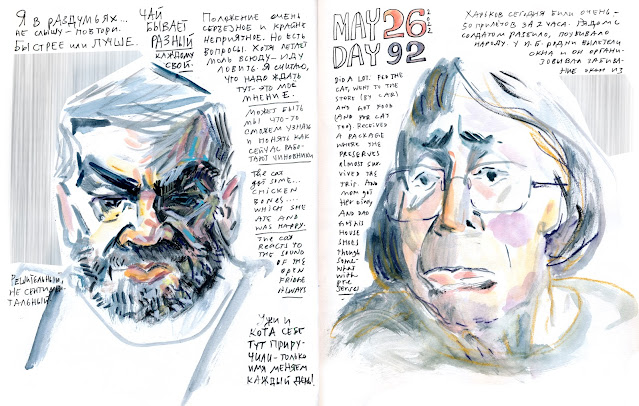 Я в раздумьях...
не слышу – повтори.
Быстрее или лучше.
Чай
бывает
разный
каждому
свой.
Положение очень
серьезное и крайне
неприятное. Но есть
вопросы. Хотя летает
моль всюду – иду
ловить. Я считаю,
что надо ждать
тут – это мое
мнение.
Может быть
мы что-то
сможем узнать
и понять как
сейчас рабо-
тают чиновники
The cat
got some...
chicken
bones....
which she
ate and
was happy.
The cat
reacts to
the sound
of the
open
fridge
always
Решительный,
не сентимен-
тальный
Ужи и
кота себе
тут приру-
чили – только
имя меняем
каждый день!
MAY 26 2022
DAY 92
Did a lot: fed the
cat, went to the
store (by car)
and got food
(and for cat
too). Received
a package
where the
preserves
almost sur-
vived the
trip. And
mom got
her
and dad
his
house
shoes
though
some-
what
with
pre
serves
Харьков сегодня били очень –
50 прилетов за 2 часа. Рядом с
солдатом разбило, поубивало
народу. У И.Б. родни вылетели
окна и он органи-
зовывал забива-
ние окон из